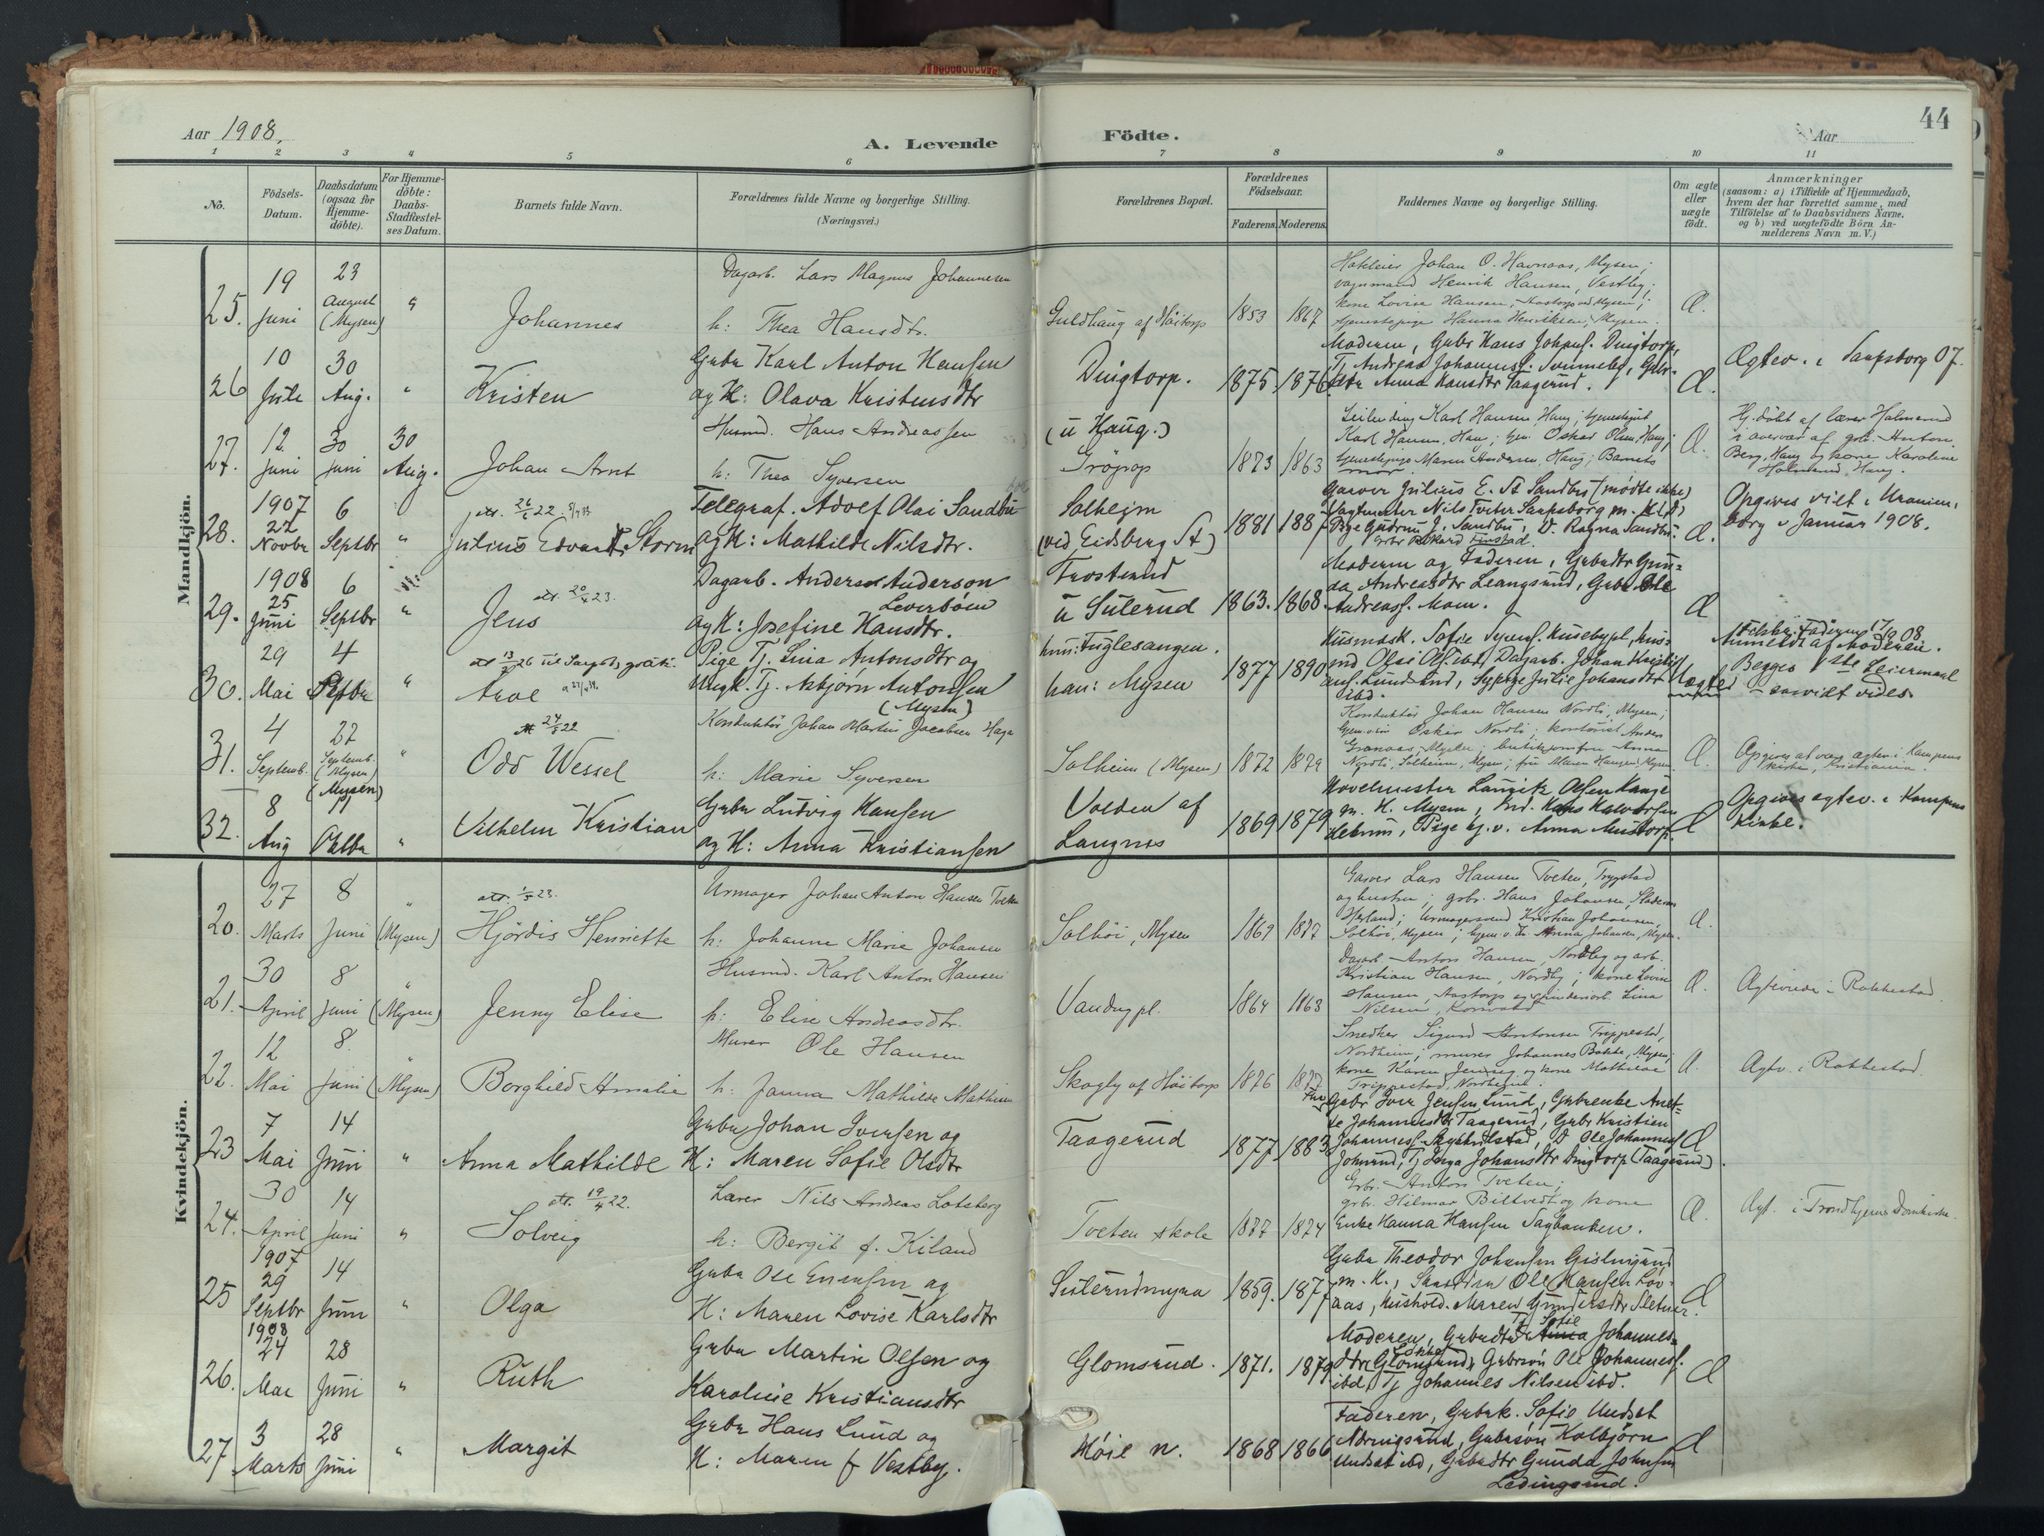 Aar 1908.
A. Levende Födte.
Aar
44
1 2 3 4 5 6 7 8 9 10 11
No.
Födsels-Datum.
Daabsdatum (ogsaa for Hjemme-döbte).
For Hjemme-döbte: Daabs-Stadfæstel-ses Datum.
Barnets fulde Navn.
Forældrenes fulde Navne og borgerlige Stilling.
(Næringsvei.)
Forældrenes Bopæl.
Forældrenes Födselsaar.
Faderens. Moderens.
Faddernes Navne og borgerlige Stilling.
Om ægte eller uægte födt.
Anmærkninger
(saasom: a) i Tilfælde af Hjemmedaab,
hvem der har forrettet samme, med
Tilföielse af to Daabsvidners Navne,
og b) ved uægtefödte Börn An-
melderens Navn m. V.)
Mandkjön.
25. 19 Juni 23 August (Mysen) "
Johannes
Dagarb. Lars Magnus Johannesen
h: Thea Hansdtr.
Guldhaug af Höitorp 1853 1867
Johan O. Havnaas, Mysen;
vognmand Henrik Hansen, Vestby;
kone Lovise Hansen,
tjenestepige Hanna Henriksen, Mysen.
Æ.
26 10 Jule 30 Aug. "
Kristen
Gubr Karl Anton Hansen
og H: Olava Kristensdtr
Dingtorp. 1875. 1876
Moderen, Gubr Hans Johans. Dingtorp,
Tj. Andreas Johanness.
Anna Hansdtr Taagerud.
Æ.
Ægtev. i Sarpsborg 07.
27. 12. Juni 30 Juni 30 Aug.
Johan Arnt
Husmd. Hans Andreassen
h: Thea Syversen
(u Haug.)
1873 1863
Karl Hansen Haug;
Karl Hansen, Haug; Oskar Olsen, Haug;
tjenestepige Maren Andersen, Haug; Barnets
mor
Æ.
Hj. döbt af lærer Holmerud
i overvær af gbr. Anton
Berg, Haug og kone Karoline
Holmerud, Haug.
28. 1907 22 Novbr 6 Septbr "
22.
Julius Edvardt Storm
Telegraf. Adolf Olai Sandbu
og H: Mathilde Nilsdtr.
Solheim
(ved Eidsberg St)
1881 1887
Garver Julius E. St Sandbu (mødte ikke)
Nils Tveter Sarpsborg m. H.
Pige Gudrun J. Sandbu, D. Ragna Sandbu.
Æ.
Opgives viet i Uranien-
borg i Januar 1908.
29. 1908 25 Juni 6 Septbr "
att. 20/4 23.
Jens
Dagarb. Anders Anderson
Leverböen
og H: Josefine Hansdtr.
u Suterud 1863. 1868
Moderen og Faderen, Gubrdtr Gun-
da Andreasdtr Leangsrud, Gubr Ole
Andreass. Mom.
Æ
30. 29 Mai 4 Septbr "
Arve
Pige Tj. Lina Antonsdtr og
Ungk. Tj. Asbjørn Antonsen
(Mysen)
hun: Fuglesangen.
han: Mysen
1877 1890
Husmdsk. Sofie
Olai Ols. ibd, Dagarb. Johan
ibd.
Uægte
Anmeldt af Moderen.
Begges 1ste Leiermaal
saavidt vides.
31. 4 Septemb. 27 Septemb. (Mysen) "
24/5 22
Odd Wessel
Konduktör Johan Martin Jacobsen Haga
h: Marie Syversen
Solheim (Mysen) 1872 1879
Konduktör Johan Hansen Nordli, Mysen;
Oskar Nordli; kontorist Anders
Granaas, Mysen; Anna
Nordli, Solheim, Mysen; fru Maren Hansen, Mysen
Æ.
Opgives at være ægtev. i Kampens
kirke, Kristiania.
32. 8 Aug (Mysen) 11 Oktbr "
Vilhelm Kristian
Gubr Ludvig Hansen
og H: Anna Kristiansen
Volden af
Langnes
1869 1879
Laurits Olsen
m. H. Mysen, Hans Halvorsen
Pige Anna
Æ
Opgives egtev. i Kampens
Kirke.
Kvindekjön.
20. 27 Marts 8 Juni (Mysen) "
att. 1/5 23.
Hjördis Henriette
Urmager Johan Anton Hansen Tveten
h: Johanne Marie Johansen
Solhöi, Mysen 1869 1877
Garver Lars Hansen Tveten, Trygstad
og hustru; gbr. Hans Johansen,
Herland; Urmagersvend Kristian Johansen,
Solhöi, Mysen; Anna Johansen, Mysen.
Æ.
21. 30 April 8 Juni (Mysen) "
Jenny Elise
Husmd. Karl Anton Hansen
h: Elise Andreasdtr.
1864 1863
Dagarb. Anton Hansen, Nordby og arb.
Kristian Hansen, Nordby; kone Lovise
Hansen, Lina
Nilsen,
Æ.
Ægteviede i Rakkestad.
22. 12 Mai 8 Juni (Mysen) "
Borghild Amalie
Murer Ole Hansen
h: Janna Mathilde Mathisen
Skogly af Höitorp 1876 1877
Snedker Sigurd Antonsen Trippestad,
Nordheim; murer Johannes Bakke, Mysen;
kone Karen Jensen og kone Mathilde
Trippestad, Nordheim.
Æ.
Ægtv. i Rakkestad.
23 7 Mai 14 Juni "
Anna Mathilde
Gubr Johan Iversen og
H: Maren Sofie Olsdtr
Taagerud 1877 1883
Gubr Iver Jensen Lund, Gubrenke Anet-
te Johannesdtr Taagerud, Gubr Kristien
Johanness. D. Ole Johanness
Tj Inga Johansdtr Dingtorp (Taagerud).
Æ
24. 30 April 14 Juni "
att. 19/4 22.
Solveig
Lærer Nils Andreas Loteberg
h: Bergit f. Kiland
Tveten skole 1877 1874
Gbr. Anton Tveten;
gbr. Hilmar Biltvedt og kone
Enke Hanna Hansen Sagbanken.
Æ.
Ægt. i Trondhjems Domkirke.
25 1907 29 Septbr 14 Juni "
Olga
Gubr Ole Evensen og
H: Maren Lovise Karlsdtr
Suterudmyra 1859. 1877
Gubr Theodor Johansen Gislingrud
m. H., Ole Hansen Lov-
aas, Hushold. Maren Gundersdtr Sletner.
Æ
26. 1908 24 Mai 28 Juni "
Ruth
Gubr Martin Olsen og
Karoline Kristiansdtr
Glomsrud. 1871. 1879
Moderen, Gubrdtr Sofie Johannes-
dtr Glomsrud, Gubrsön Ole Johanness.
ibd, Tj Johannes Nilsen ibd.
Æ
27 3 Marts 28 Juni "
Margit
Gubr Hans Lund og
H: Maren f Vestby.
Høie n. 1868 1866
Faderen, Gubrk. Sofie Undset
Næringsrud, Gubrsön Kolbjörn
Undset ibd, Gubrdtr Gunda Johnsen
Ledingsrud.
Æ